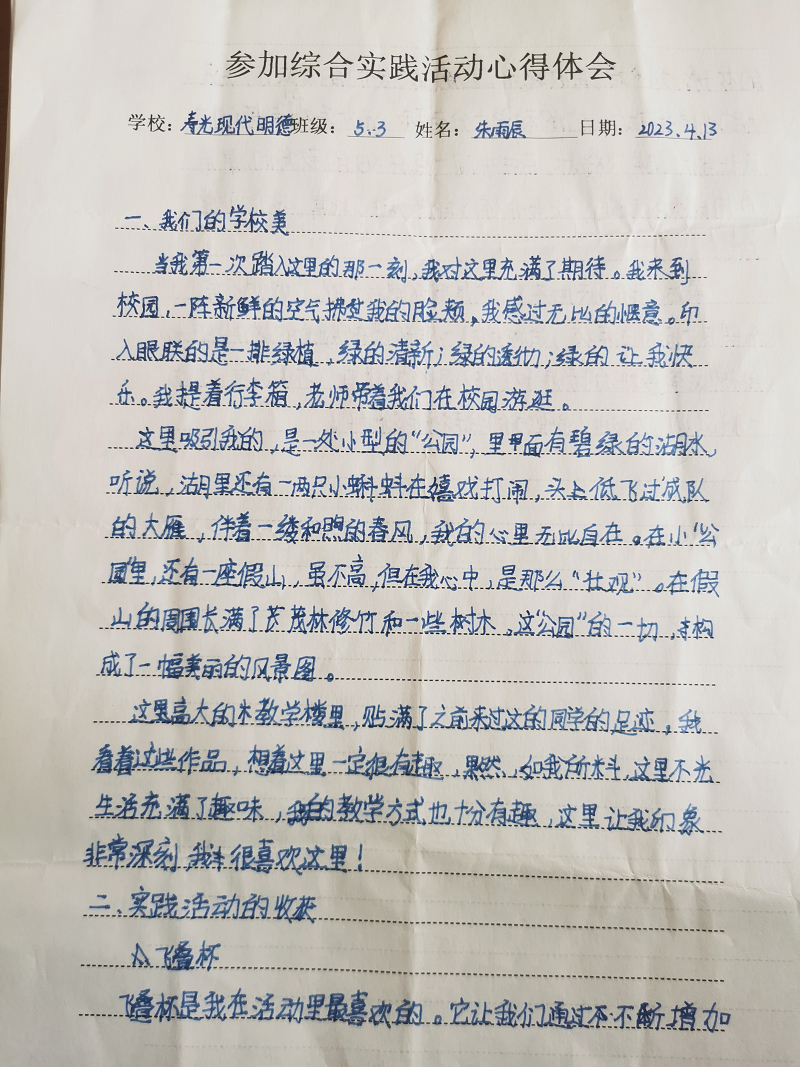 参加综合实践活动心得体会
学校：寿光现代明德班级：5.3 姓名：朱雨辰 日期：2023.4.13
一、我们的学校美
当我第一次踏入这里的那一刻，我对这里充满了期待。我来到
校园，一阵新鲜的空气拂过我的脸颊，我感过无比的惬意。印
入眼联的是一排绿植，绿的清新；绿的透彻；绿的让我快
乐。我提着行李箱，老师带着我们在校园游逛。
这里吸引我的，是一处小型的“公园”，里面有碧绿的湖水，
听说，湖里还有一两只小蝌蚪在嬉戏打闹，头上低飞过成队
的大雁，伴着一缕和煦的春风，我的心里无比自在。在小“公
园”里，还有一座假山，虽不高，但在我心中，是那么“壮观”。在假
山的周围长满了茂林修竹和一些树木，这“公园”的一切，构
成了一幅美丽的风景图。
这里高大的教学楼里，贴满了之前来过这的同学的足迹，我
看着这些作品，想着这里一定很有趣，果然，如我所料，这里不光
生活充满了趣味，的教学方式也十分有趣，这里让我印象
非常深刻，我很喜欢这里！
二、实践活动的收获
飞叠杯
飞叠杯是我在活动里最喜欢的。它让我们通过不断增加